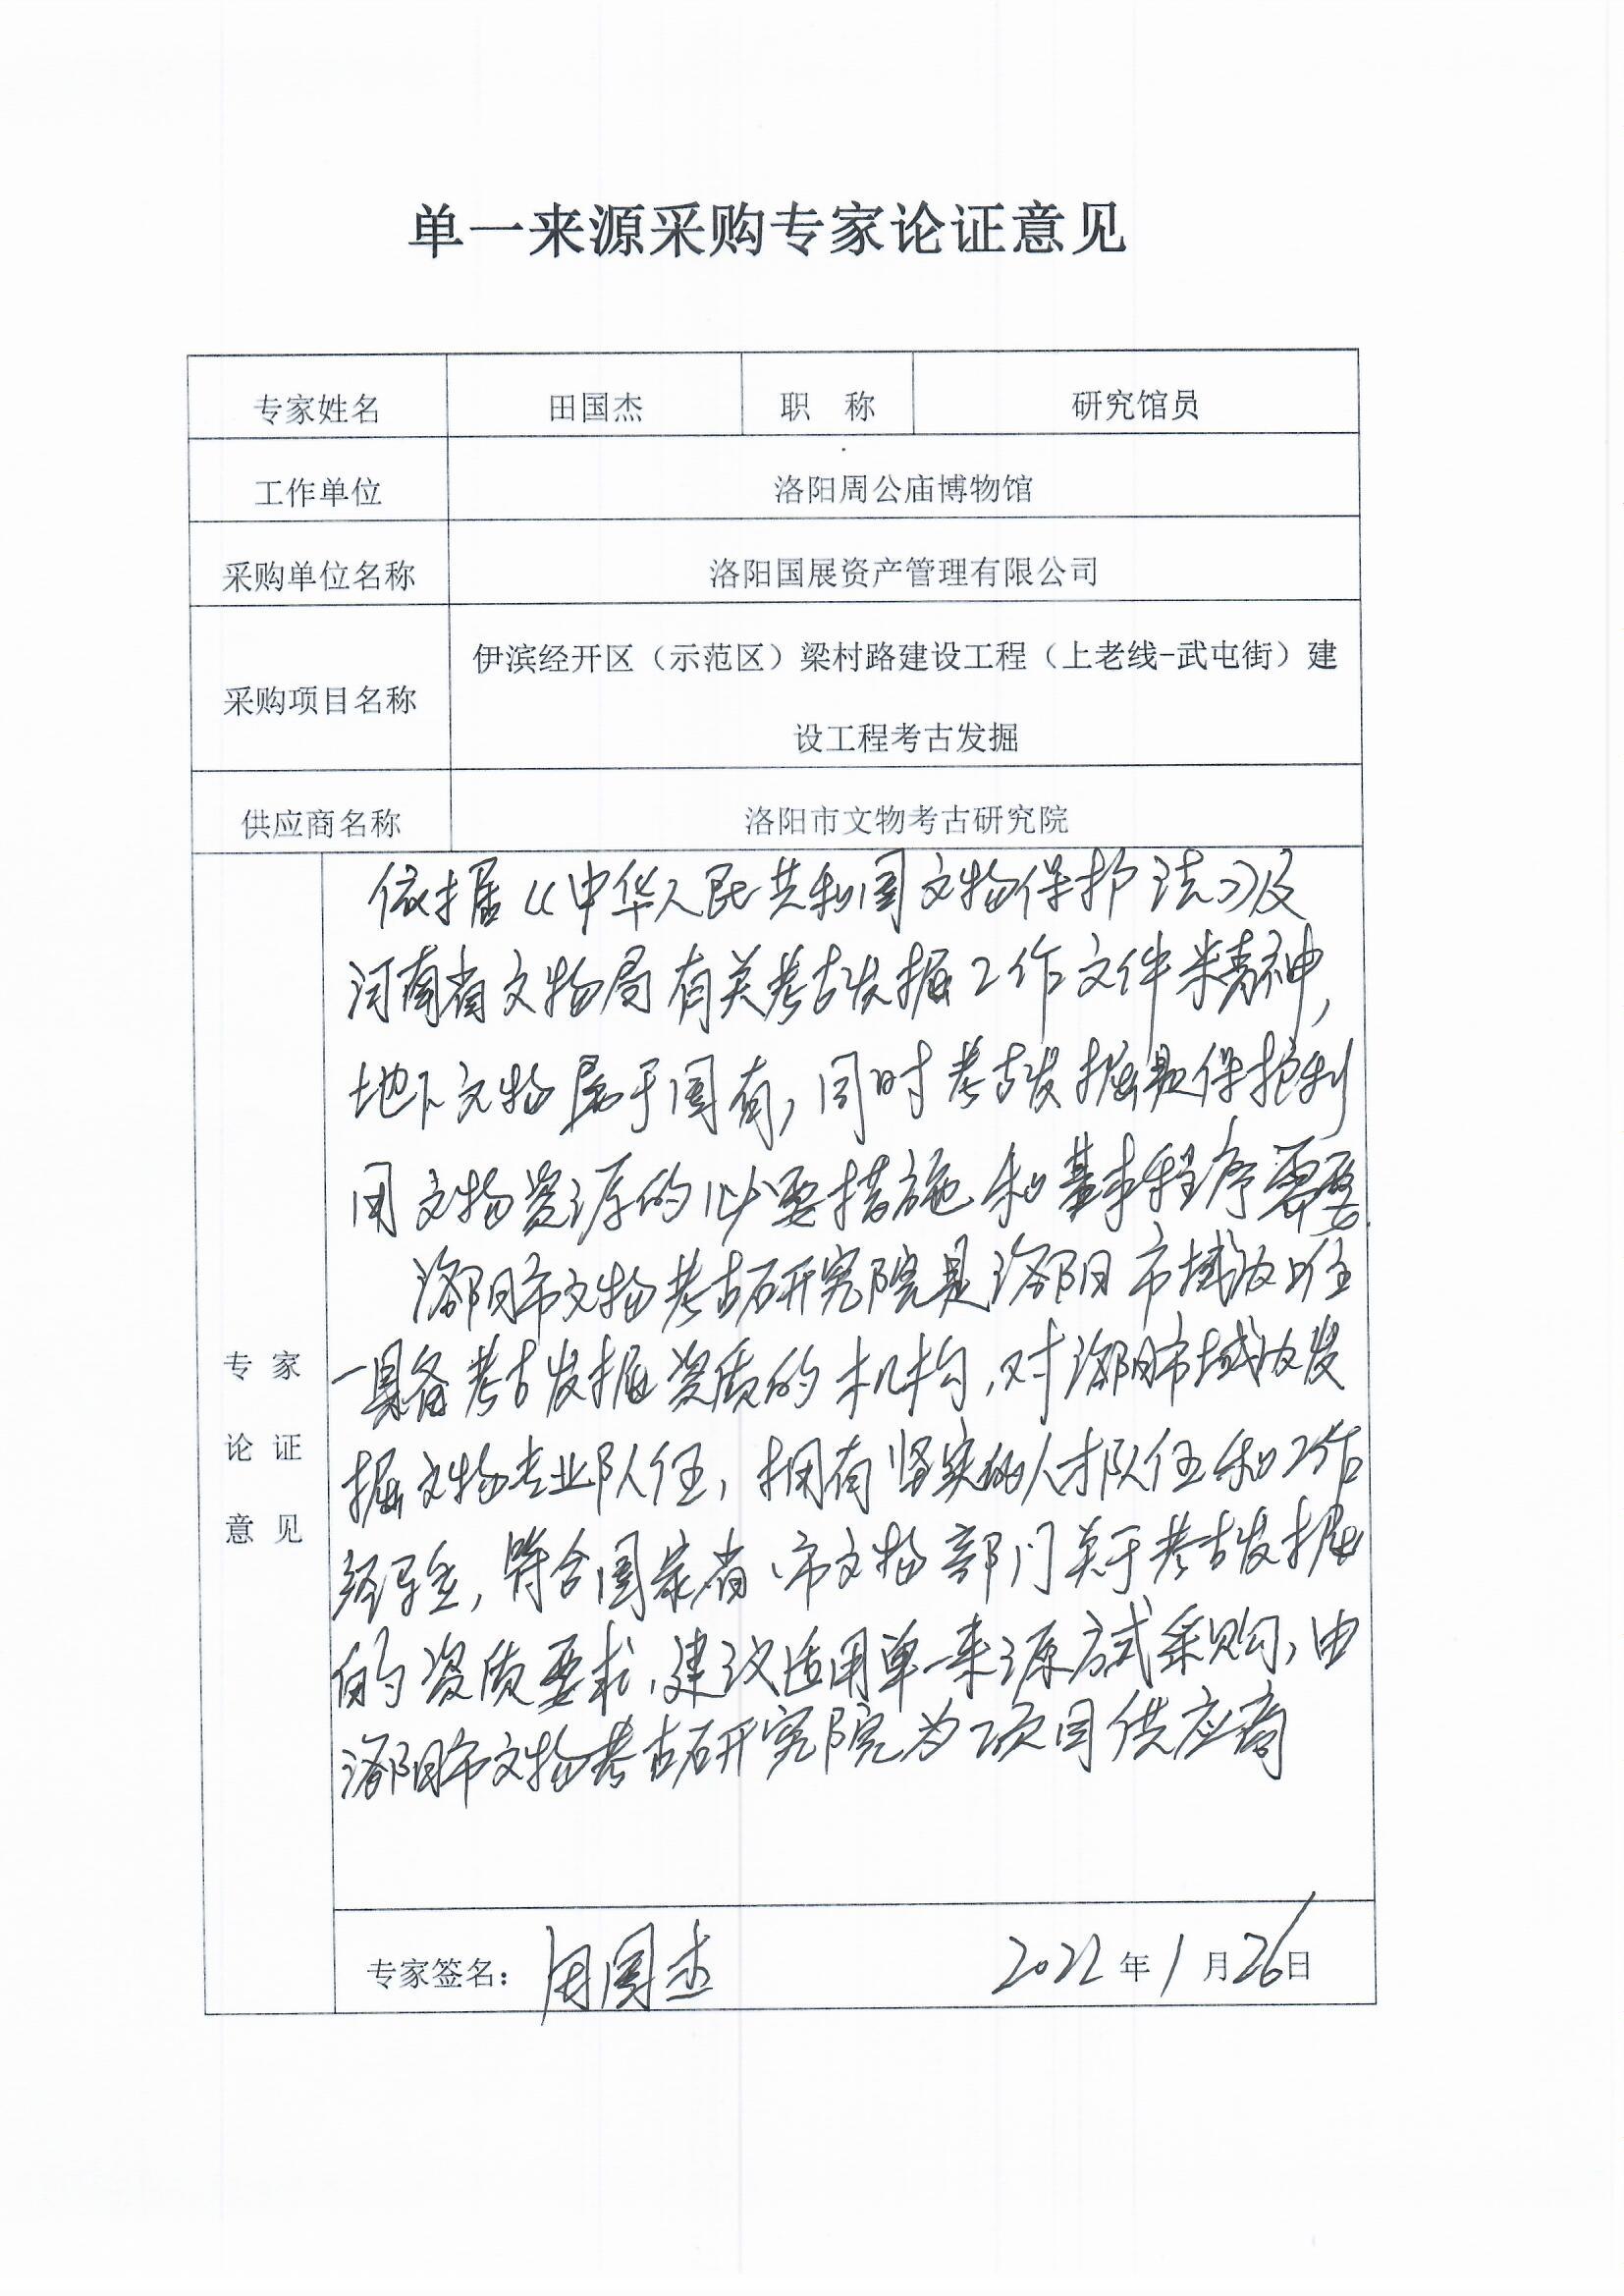 单一来源采购专家论证意见
专家姓名 田国杰 职 称 研究馆员
工作单位 洛阳周公庙博物馆
采购单位名称 洛阳国展资产管理有限公司
采购项目名称 伊滨经开区（示范区）梁村路建设工程（上老线-武屯街）建
设工程考古发掘
供应商名称 洛阳市文物考古研究院
专家
论证
意见
依据《中华人民共和国文物保护法》及
河南省文物局有关考古发掘工作文件精神，
地下文物属于国有，同时考古发掘是保护利
用文物资源的必要措施和基本程序需要
洛阳市文物考古研究院是洛阳市域内唯
一具备考古发掘资质的机构，对洛阳市域内发
掘文物专业队伍，拥有坚实的人才队伍和工作
经验，符合国家省、市文物部门关于考古发掘
的资质要求，建议适用单一来源方式采购，由
洛阳市文物考古研究院为项目供应商
专家签名：田国杰 2022年1月26日